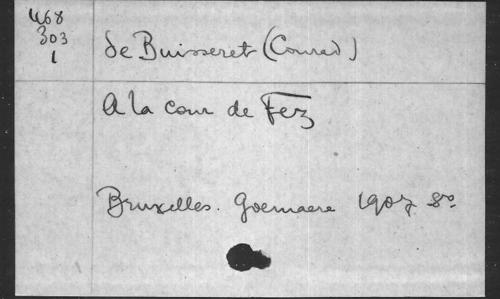 468
303
1
de Buisseret (Conrad)
A la cour de Fez
Bruxelles. Goemaere 1907 8º